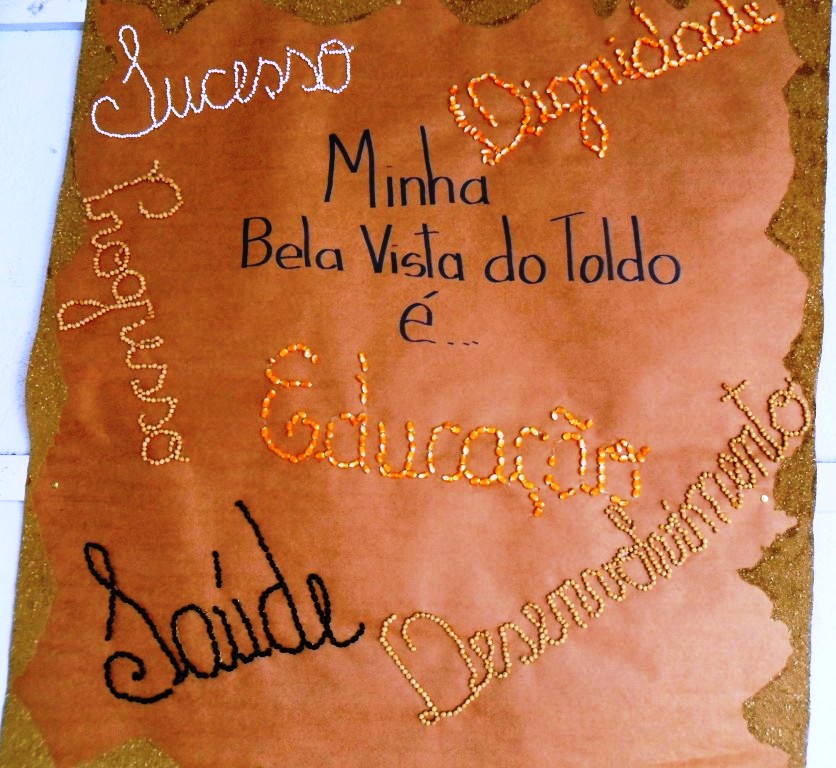 Sucesso
Dignidade
Minha
Bela Vista do Toldo
é...
Progresso
Educação
Saúde
Desenvolvimento